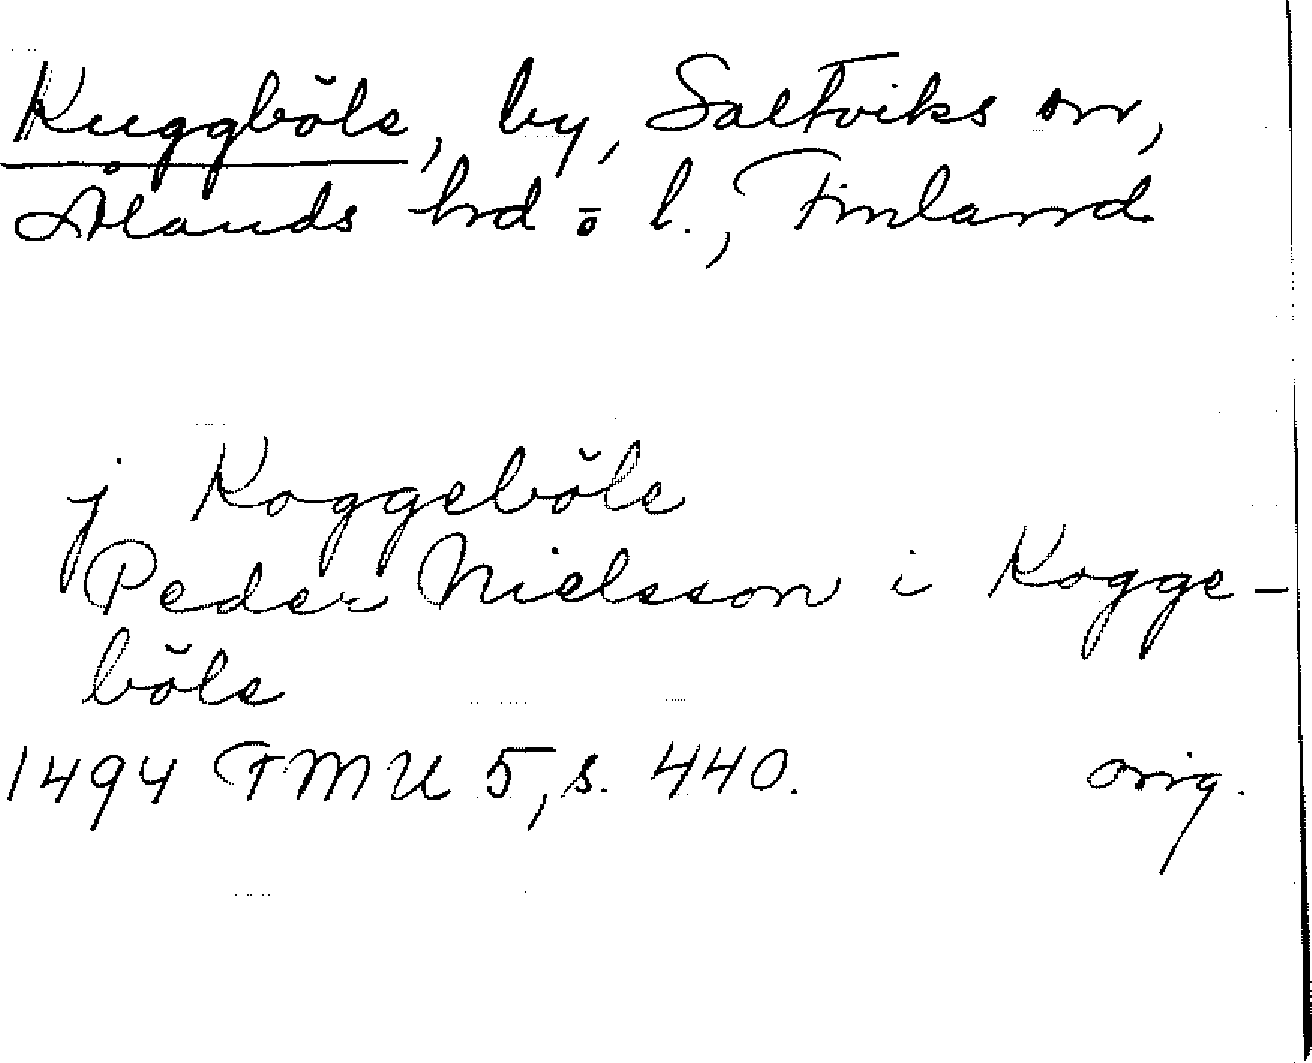 Kuggböle, by, Saltviks sn,
Ålands hrd o l., Finland
j Koggeböle
Peder Nielsson i Kogge-
böle
1494 FMU 5, s. 440. orig.